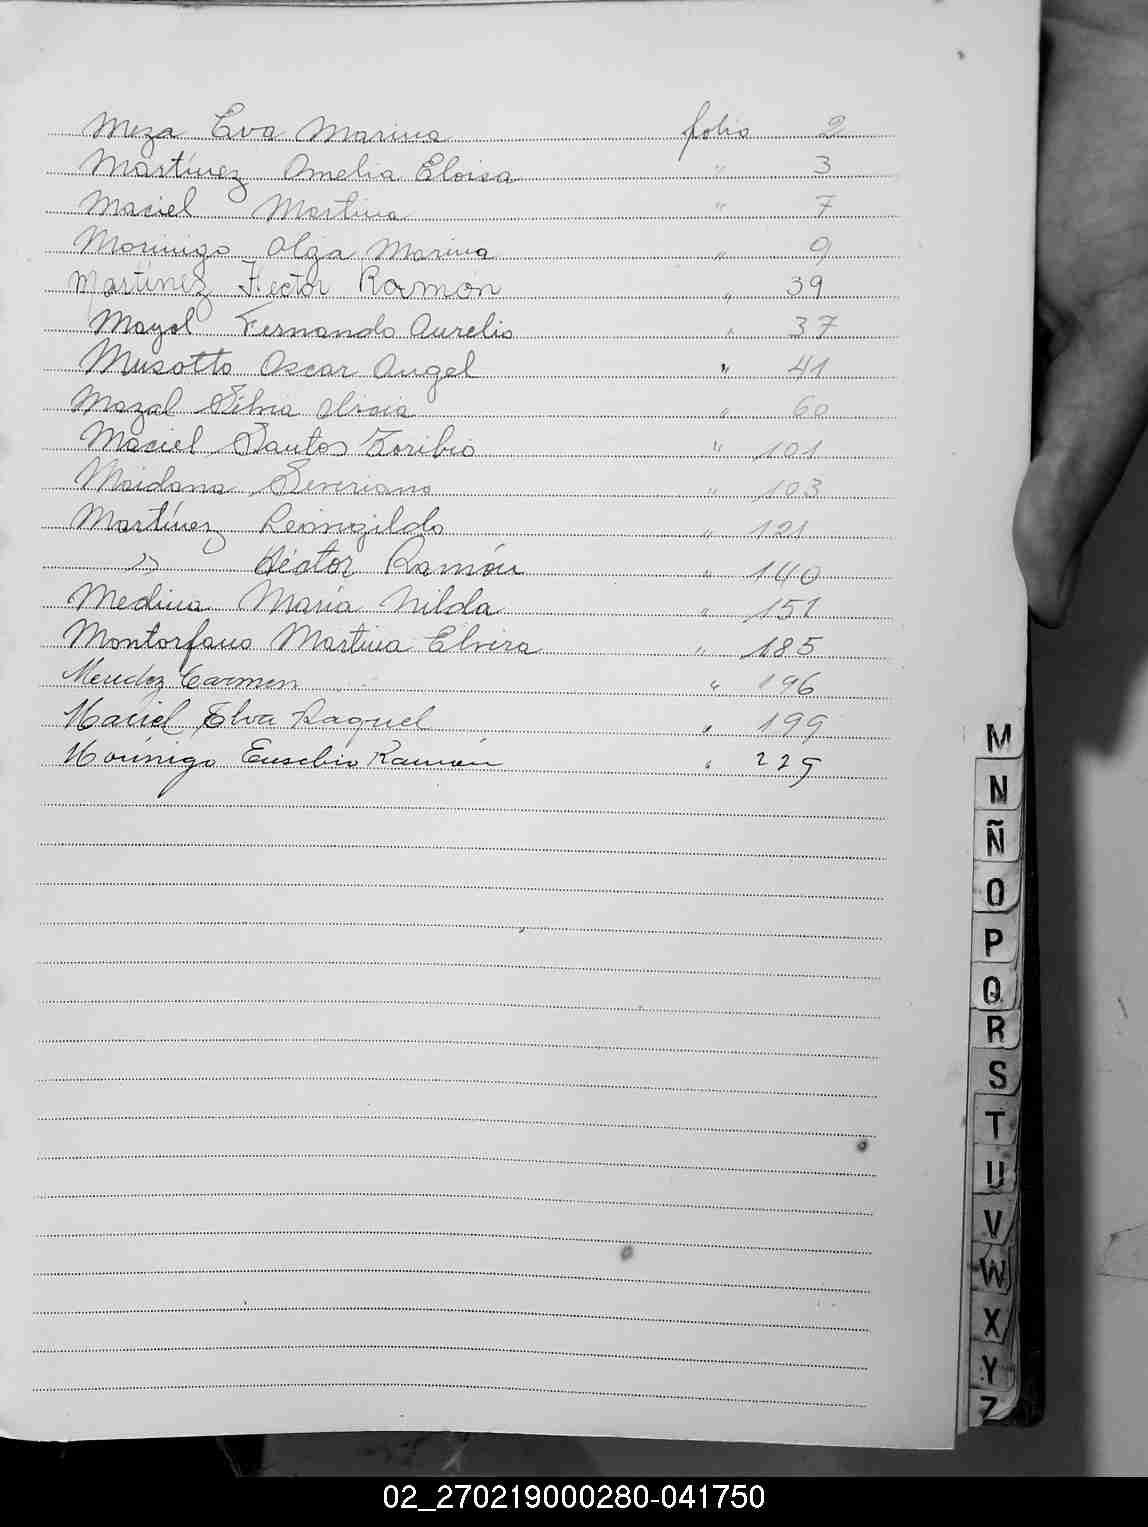 Meza Eva Marina folio 2
Martínez Amelia Eloisa " 3
Maciel Martina " 7
Morinigo Olga Marina " 9
Martinez Hector Ramón " 39
Mayol Fernando Aurelio " 37
Musotto Oscar Angel " 41
Mazal Silvia " 60
Maciel Santos Toribio " 101
Maidana Severiano " 103
Martínez Leovigildo " 121
" Héctor Ramón " 140
Medina María Nilda " 151
Montorfano Martina Elvira " 185
Mendez Carmen " 196
Maciel Elva Raquel " 199
Morinigo Eusebio Ramón " 229
M
N
Ñ
O
P
Q
R
S
T
U
V
W
X
Y
Z
02_270219000280-041750